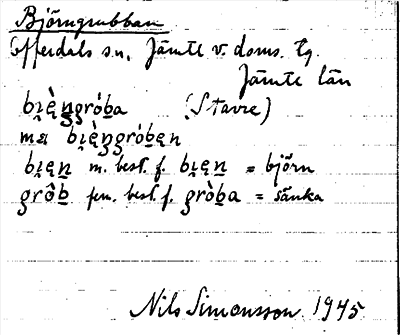 Björngrubban
Offerdals sn, Jämte v. doms. tg.
Jämte län
bi̯èŋgrò́ba (Stavre)
mɶ bi̯èŋgróben
bi̯en m. best. f. bi̯en = björn
grôb fem. best. f. gròba = sänka
Nils Simonsson 1945